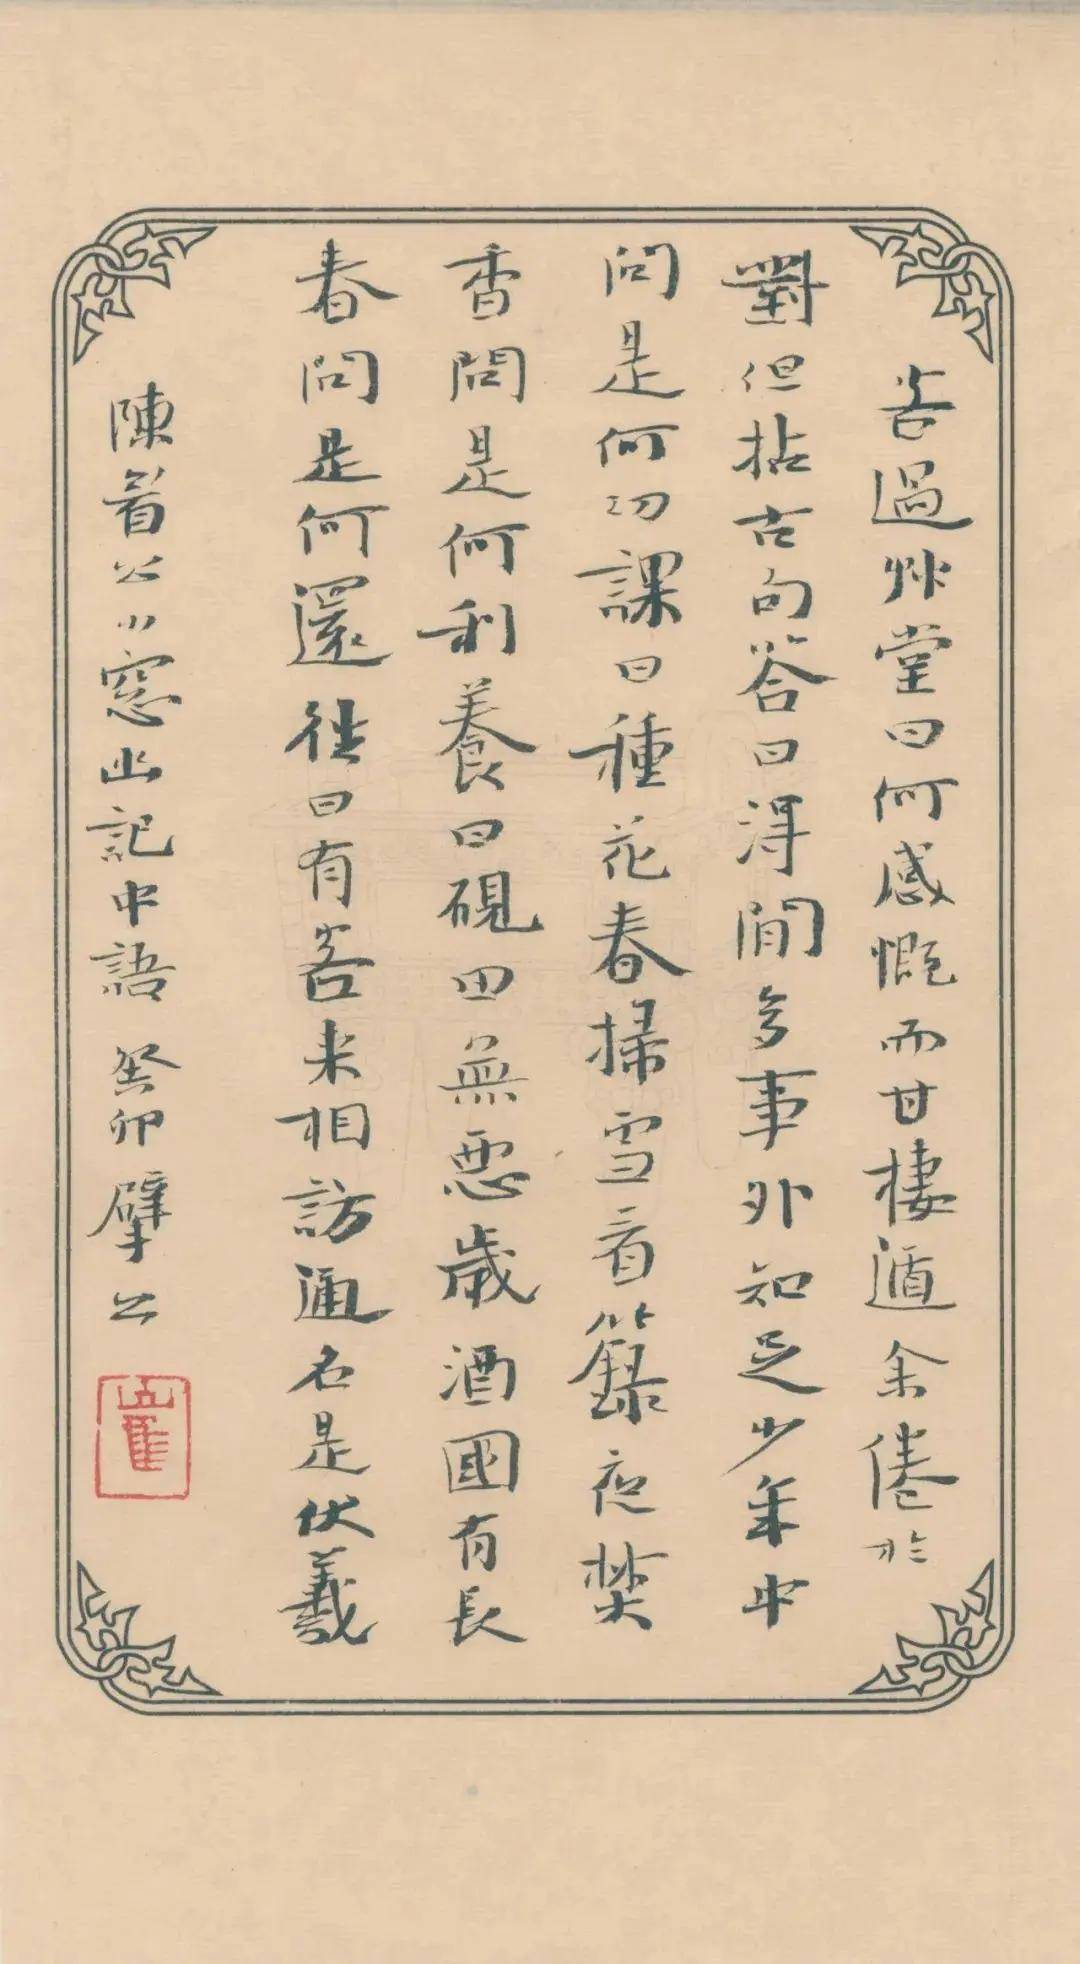 客過艸堂曰何感慨而甘棲遁余倦於
對但拈古句答曰得閒多事外知足少年中
問是何功課曰種花春掃雪看籙夜焚
香問是何利養曰硯田無惡歲酒國有長
春問是何還往曰有客来相訪通名是伏羲
陳眉公小窓幽記中語 癸卯擘公